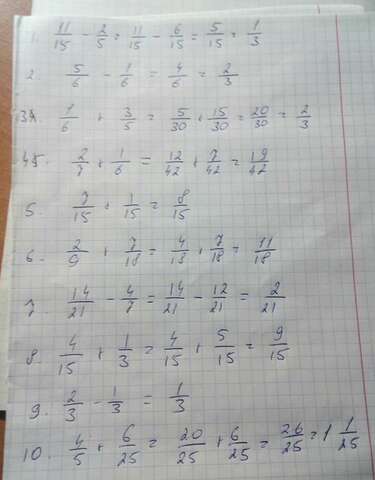 1. 11/15 - 2/5 = 11/15 - 6/15 = 5/15 = 1/3
2. 5/6 - 1/6 = 4/6 = 2/3
3. 1/6 + 3/5 = 5/30 + 15/30 = 20/30 = 2/3
4. 2/7 + 1/6 = 12/42 + 7/42 = 19/42
5. 7/15 + 1/15 = 8/15
6. 2/9 + 7/18 = 4/18 + 7/18 = 11/18
7. 14/21 - 4/7 = 14/21 - 12/21 = 2/21
8. 4/15 + 1/3 = 4/15 + 5/15 = 9/15
9. 2/3 - 1/3 = 1/3
10. 4/5 + 6/25 = 20/25 + 6/25 = 26/25 = 1 1/25